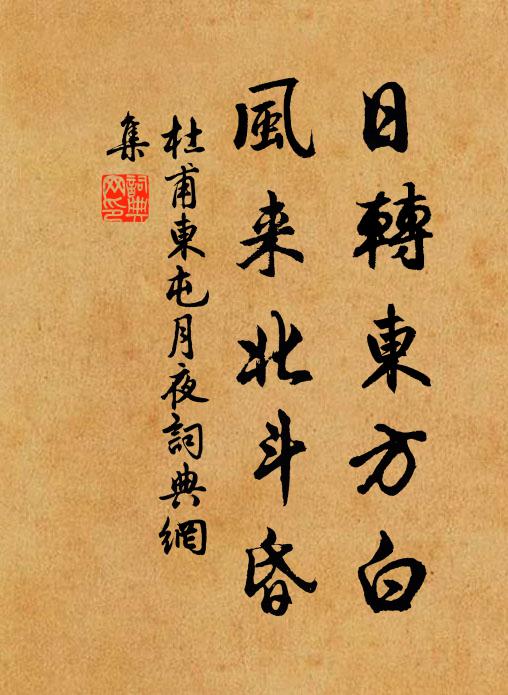 日轉東方白
風来北斗昏
杜甫東屯月夜詞典網
集
詞典
网印